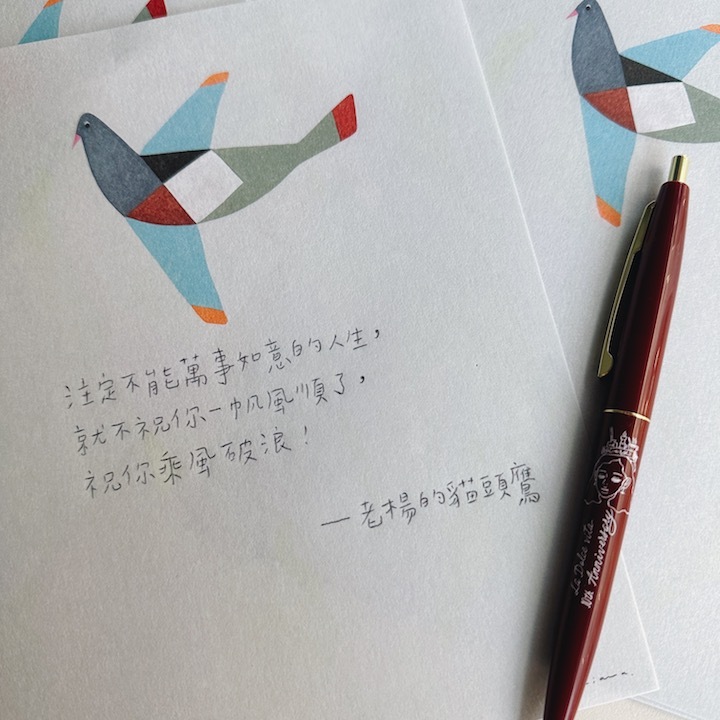 注定不能萬事如意的人生，
就不祝你一帆風順了，
祝你乘風破浪！
— 老楊的貓頭鷹
La Dolce Vita
10th Anniversary